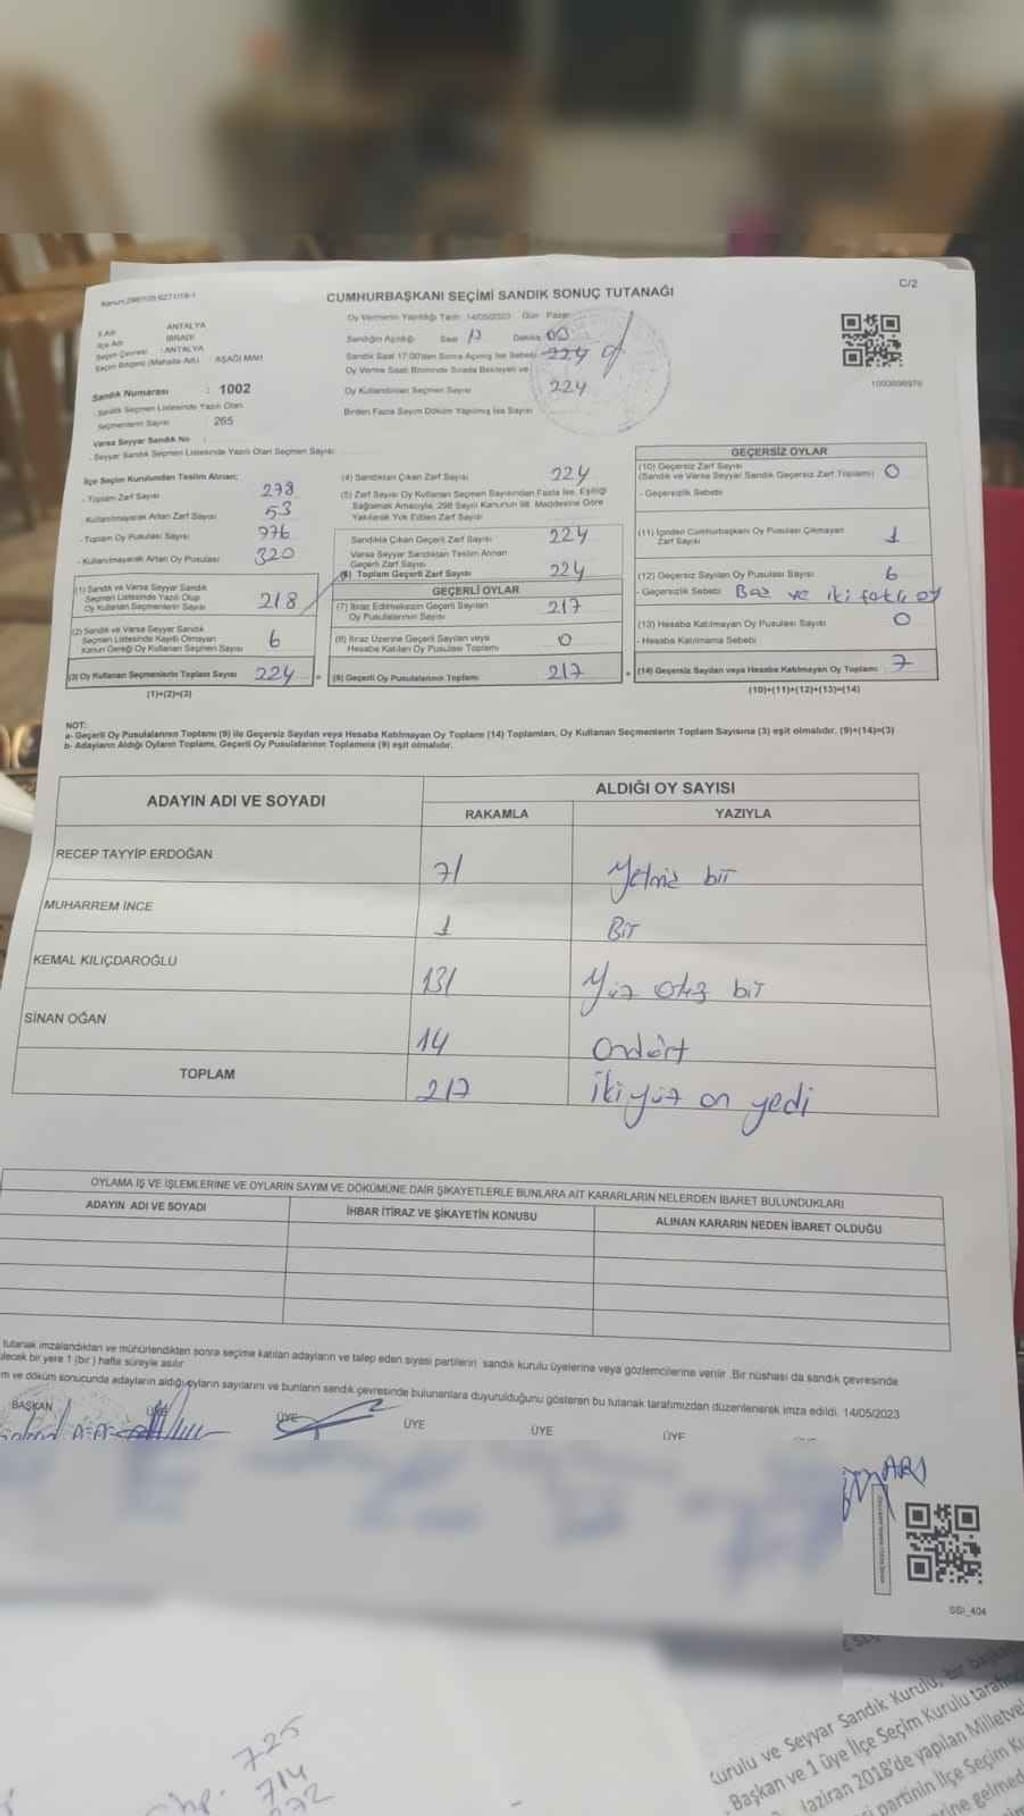 C/2
CUMHURBAŞKANI SEÇİMİ SANDIK SONUÇ TUTANAĞI
İl Adı ANTALYA
İlçe Adı İBRADI
Seçim Çevresi : ANTALYA
Seçim Bölgesi (Mahalle Adı) : AŞAĞI MAH
Sandık Numarası : 1002
Sandık Seçmen Listesinde Yazılı Olan
Seçmenlerin Sayısı 265
Varsa Seyyar Sandık No
- Seyyar Sandık Seçmen Listesinde Yazılı Olan Seçmen Sayısı
Oy Vermenin Yapıldığı Tarih 14/05/2023 Gün Pazar
Sandığın Açıldığı Saat Dakika 00
Sandık Saat 17:00'den Sonra Açılmış İse Sebebi 224
Oy Verme Saati Bitiminde Sırada Bekleyen ve
Oy Kullandırılan Seçmen Sayısı 224
Birden Fazla Sayım Döküm Yapılmış İse Sayısı
İlçe Seçim Kurulundan Teslim Alınan;
- Toplam Zarf Sayısı
Kullanılmayarak Artan Zarf Sayısı 53
- Toplam Oy Pusulası Sayısı
- Kullanılmayarak Artan Oy Pusulası 320
(1) Sandık ve Varsa Seyyar Sandık
Seçmen Listesinde Yazılı Olup
Oy Kullanan Seçmenlerin Sayısı 218
(2) Sandık ve Varsa Seyyar Sandık
Seçmen Listesinde Kayıtlı Olmayan
Kanun Gereği Oy Kullanan Seçmen Sayısı 6
(3) Oy Kullanan Seçmenlerin Toplam Sayısı 224
(1)+(2)=(3)
(4) Sandıktan Çıkan Zarf Sayısı 224
(5) Zarf Sayısı Oy Kullanan Seçmen Sayısından Fazla İse, Eşitliği
Sağlamak Amacıyla, 298 Sayılı Kanunun 98. Maddesine Göre
Yakılarak Yok Edilen Zarf Sayısı
Sandıkta Çıkan Geçerli Zarf Sayısı 224
Varsa Seyyar Sandıktan Teslim Alınan
Geçerli Zarf Sayısı
(6) Toplam Geçerli Zarf Sayısı 224
GEÇERLİ OYLAR
(7) İtiraz Edilmeksizin Geçerli Sayılan
Oy Pusulalarının Sayısı 217
(8) İtiraz Üzerine Geçerli Sayılan veya
Hesaba Katılan Oy Pusulası Toplamı 0
(9) Geçerli Oy Pusulalarının Toplamı 217
GEÇERSİZ OYLAR
(10) Geçersiz Zarf Sayısı
(Sandık ve Varsa Seyyar Sandık Geçersiz Zarf Toplamı) 0
- Geçersizlik Sebebi
(11) İçinden Cumhurbaşkanı Oy Pusulası Çıkmayan
Zarf Sayısı 1
(12) Geçersiz Sayılan Oy Pusulası Sayısı 6
- Geçersizlik Sebebi ve iki farklı oy
(13) Hesaba Katılmayan Oy Pusulası Sayısı 0
- Hesaba Katılmama Sebebi
(14) Geçersiz Sayılan veya Hesaba Katılmayan Oy Toplamı 7
(10)+(11)+(12)+(13)=(14)
NOT:
a- Geçerli Oy Pusulalarının Toplamı (9) ile Geçersiz Sayılan veya Hesaba Katılmayan Oy Toplamı (14) Toplamları, Oy Kullanan Seçmenlerin Toplam Sayısına (3) eşit olmalıdır. (9)+(14)=(3)
b- Adayların Aldığı Oyların Toplamı, Geçerli Oy Pusulalarının Toplamına (9) eşit olmalıdır.
ADAYIN ADI VE SOYADI
ALDIĞI OY SAYISI
RAKAMLA YAZIYLA
RECEP TAYYİP ERDOĞAN 71 Yetmiş bir
MUHARREM İNCE 1 Bir
KEMAL KILIÇDAROĞLU 131 Yüz otuz bir
SİNAN OĞAN 14 Ondört
TOPLAM 217 İkiyüz on yedi
OYLAMA İŞ VE İŞLEMLERİNE VE OYLARIN SAYIM VE DÖKÜMÜNE DAİR ŞİKAYETLERLE BUNLARA AİT KARARLARIN NELERDEN İBARET BULUNDUKLARI
ADAYIN ADI VE SOYADI
İHBAR İTİRAZ VE ŞİKAYETİN KONUSU
ALINAN KARARIN NEDEN İBARET OLDUĞU
tutanak imzalandıktan ve mühürlendikten sonra seçime katılan adayların ve talep eden siyasi partilerin sandık kurulu üyelerine veya gözlemcilerine verilir. Bir nüshası da sandık çevresinde
bir yere 1 (bir) hafta süreyle asılır
ve döküm sonucunda adayların aldığı oyların sayılarını ve bunların sandık çevresinde bulunanlara duyurulduğunu gösteren bu tutanak tarafımızdan düzenlenerek imza edildi. 14/05/2023
BAŞKAN ÜYE ÜYE ÜYE ÜYE ÜYE
725
714
Kurulu ve Seyyar Sandık Kurulu, bir
Başkan ve 1 üye İlçe Seçim Kurulu
Haziran 2018'de yapılan
partinin İlçe Seçim